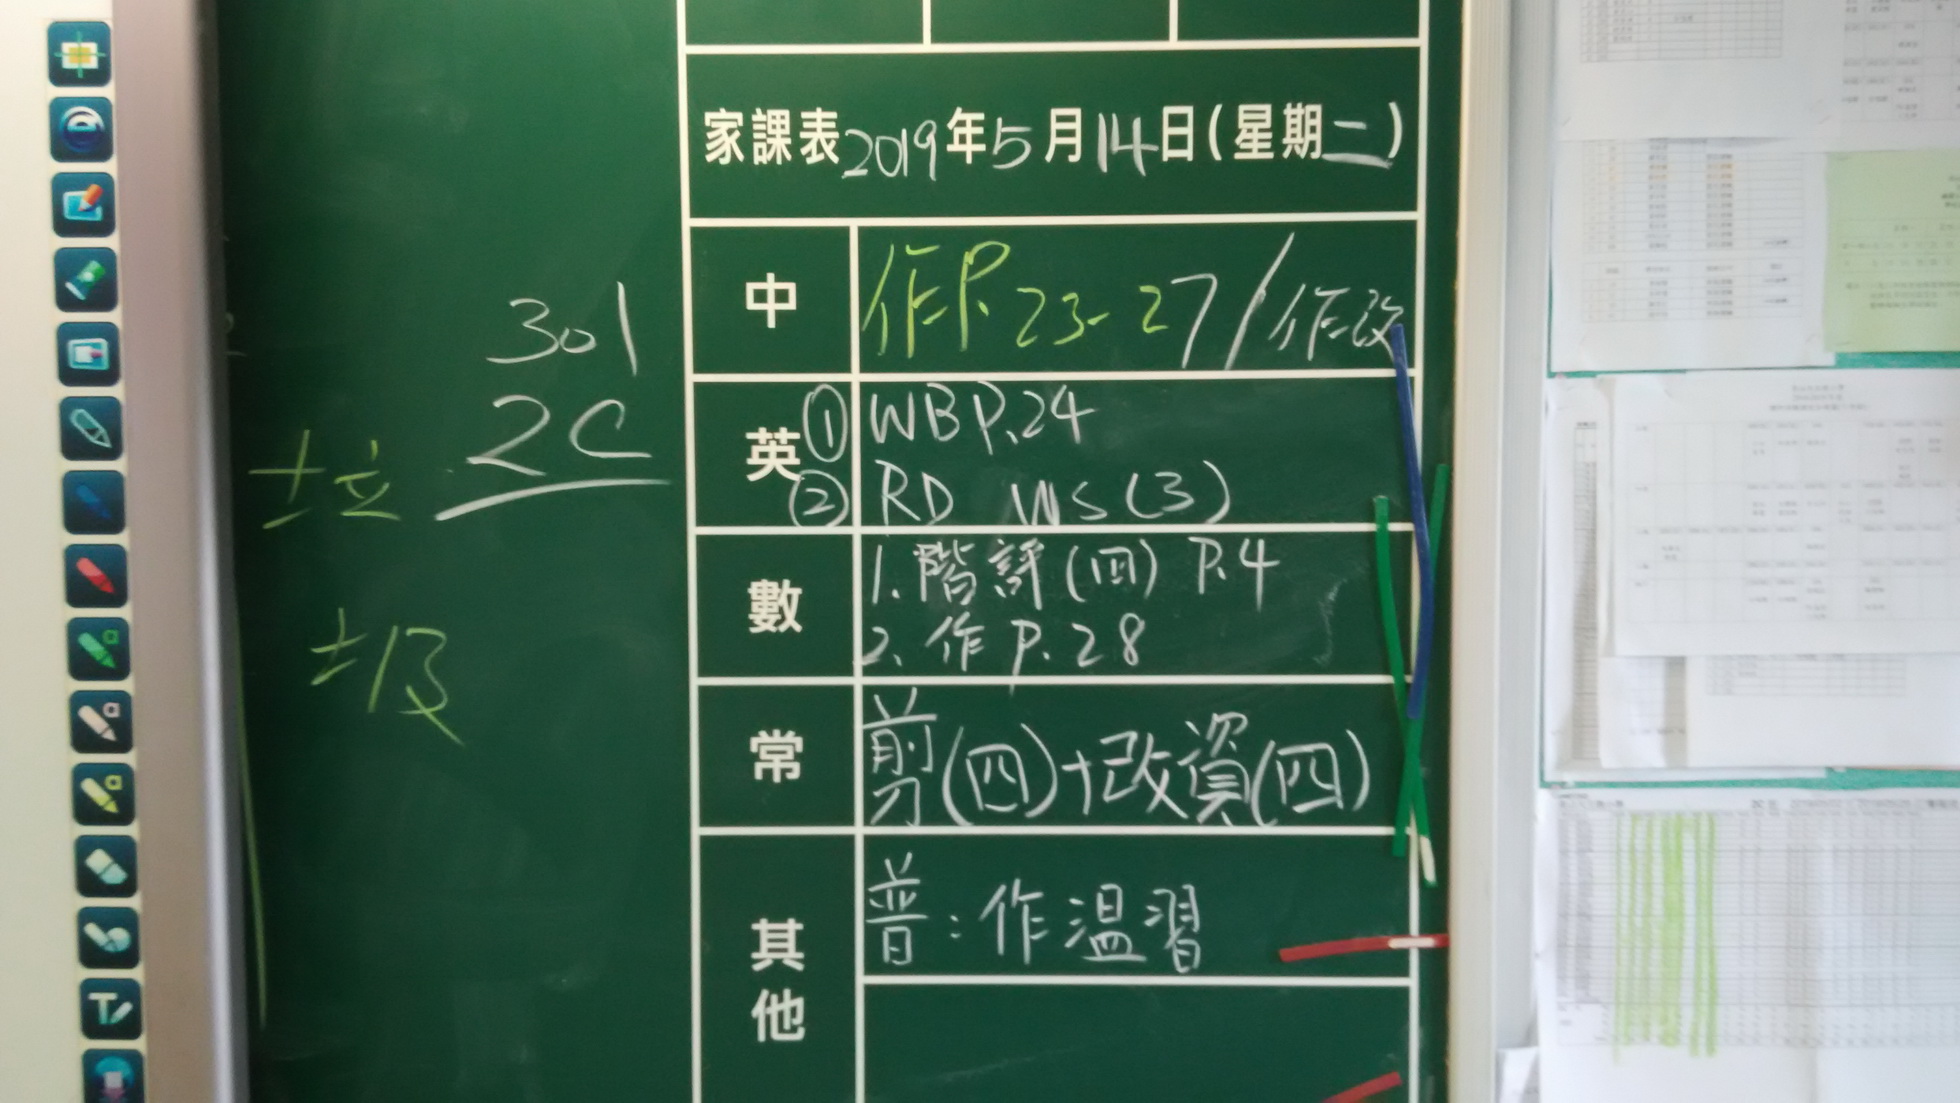 301
2C
垃
圾
家課表2019年5月14日(星期二)
中 作P.23-27/作改
英 ①WB P.24
②RD WS(3)
數 1.階評(四) P.4
2.作P.28
常 剪(四)+改資(四)
其他 普:作溫習